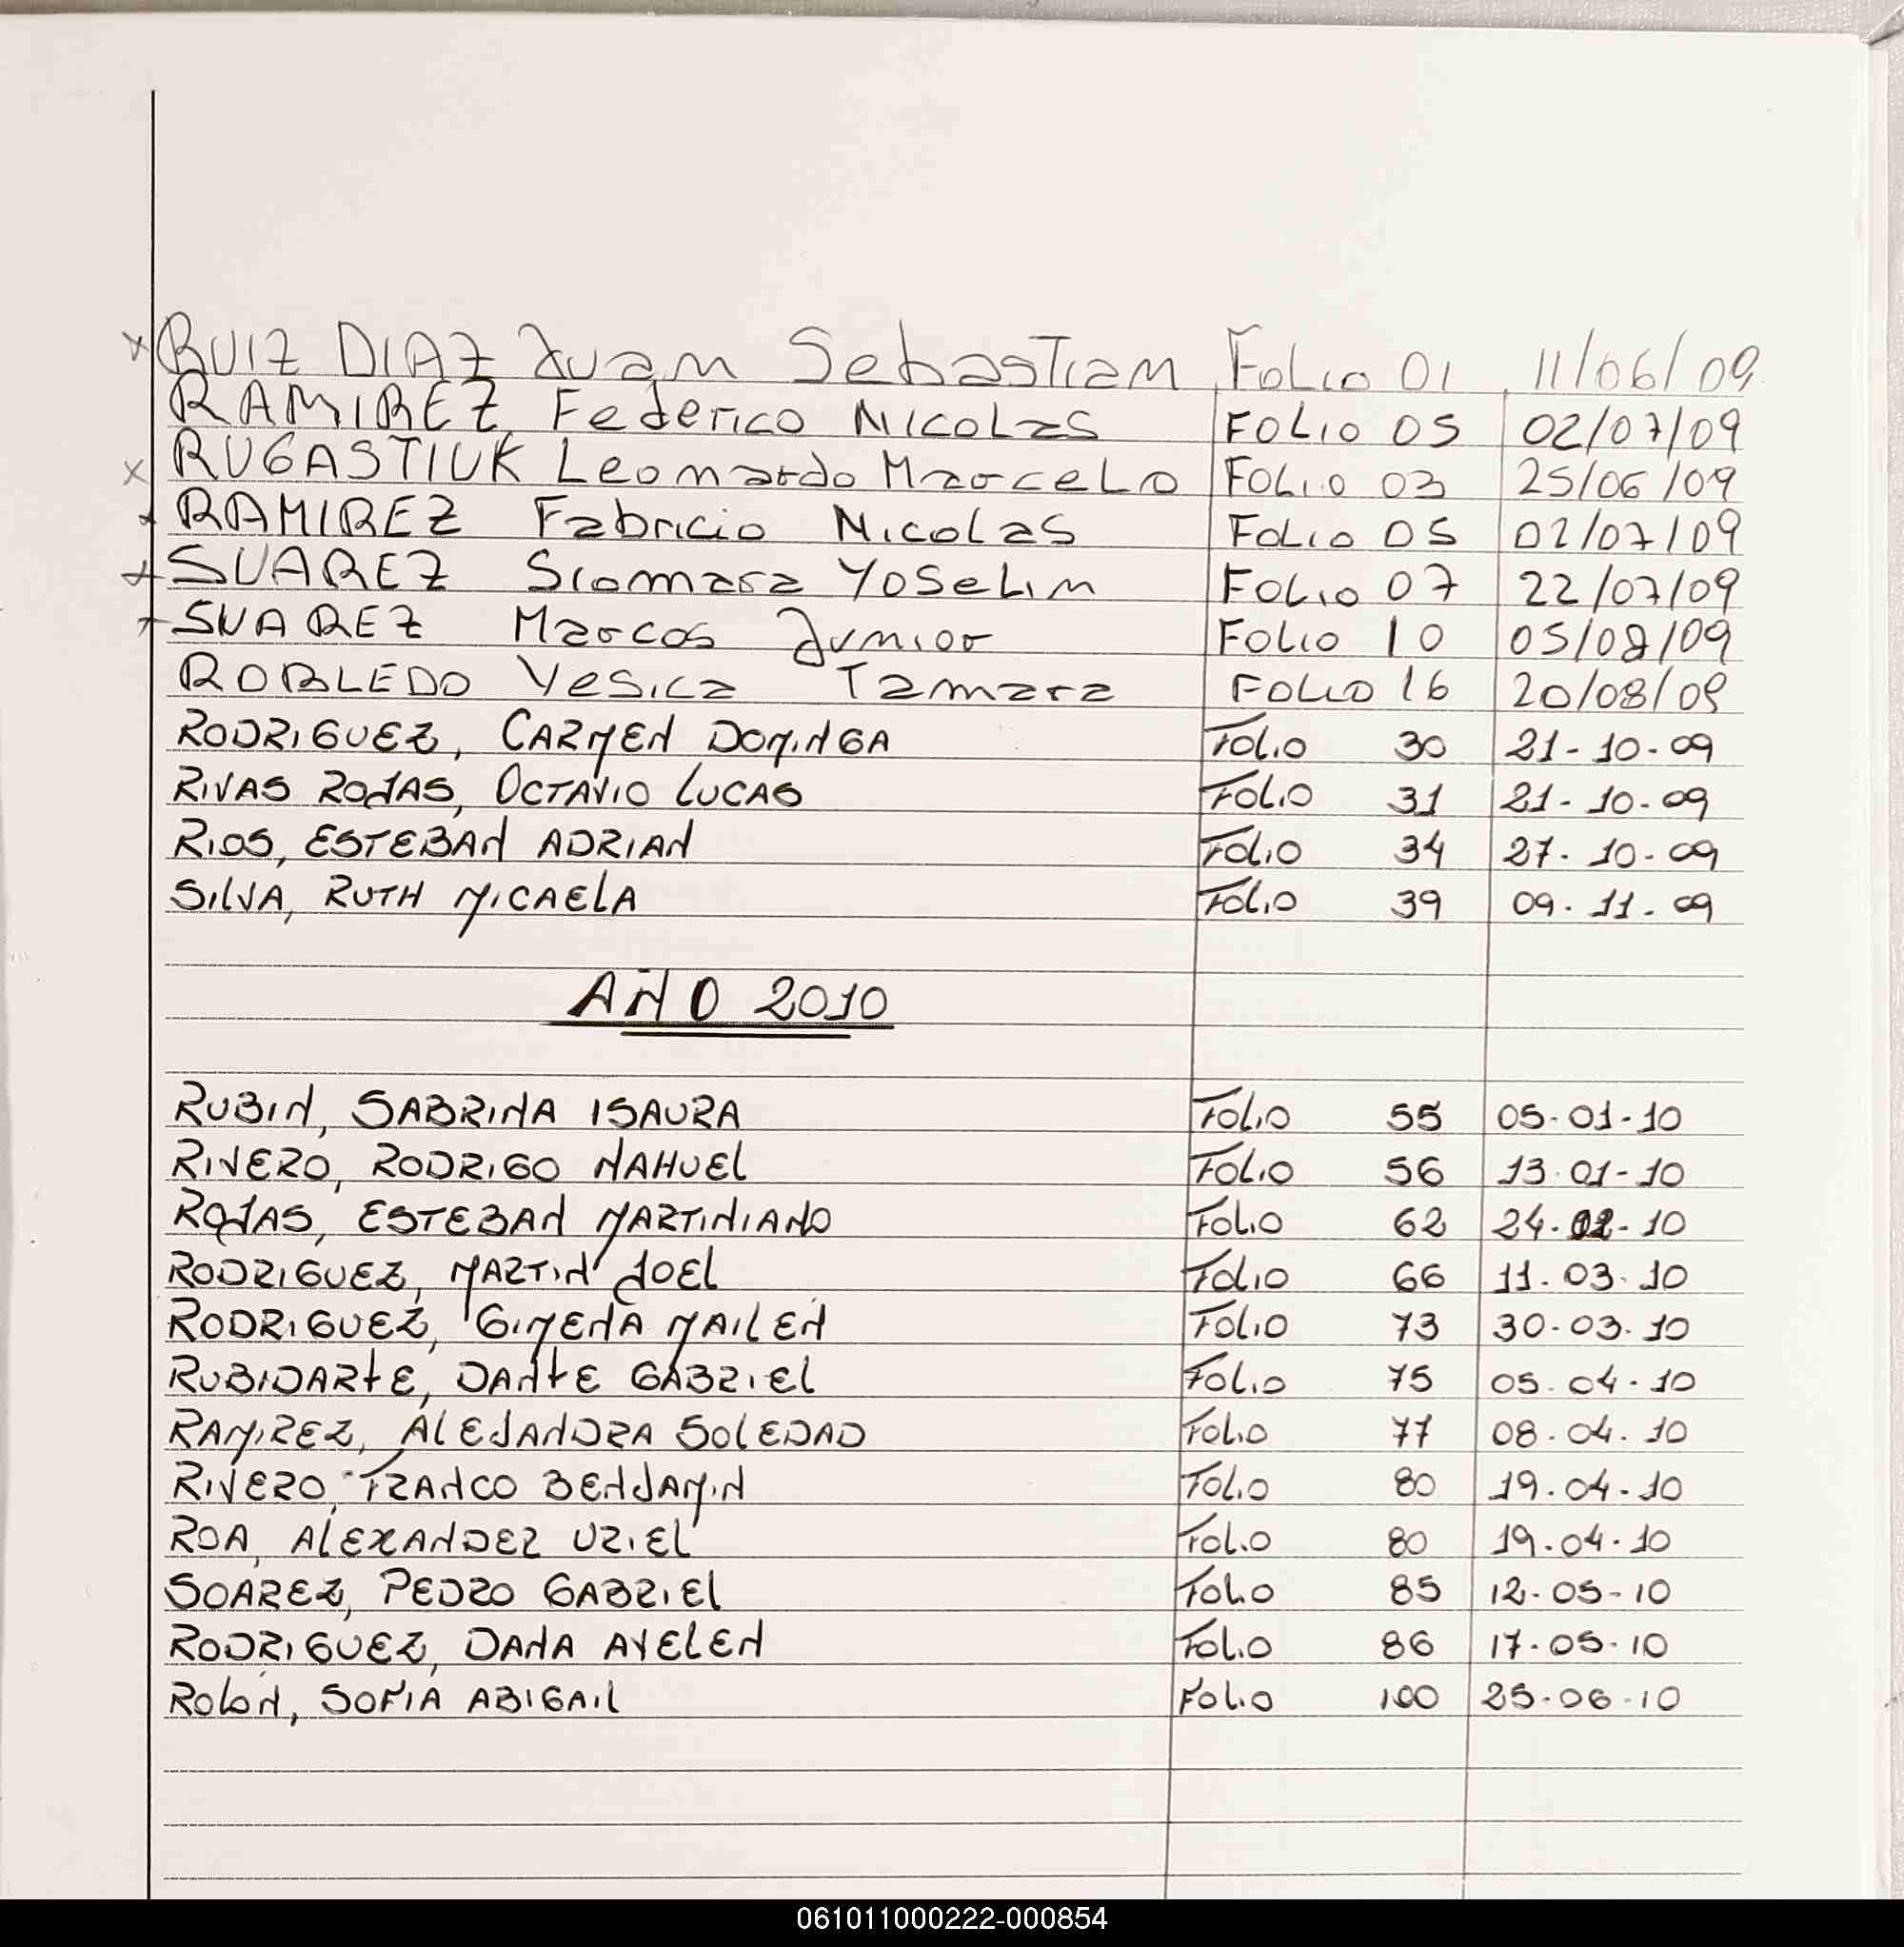 x RUIZ DIAZ Juan Sebastian Folio 01 11/06/09
RAMIREZ, Federico Nicolas FOLIO 05 02/07/09
x RUGASTIUK Leonardo Marcelo FOLIO 03 25/06/09
x RAMIREZ Fabricio Nicolas FOLIO 05 02/07/09
x SUAREZ Siomara Yoselin FOLIO 07 22/07/09
x SUAREZ Marcos Junior FOLIO 10 05/08/09
ROBLEDO Yesica Tamara FOLIO 16 20/08/09
RODRIGUEZ, CARMEN DOMINGA Folio 30 21-10-09
RIVAS ROJAS, OCTAVIO LUCAS Folio 31 21-10-09
RIOS, ESTEBAN ADRIAN Folio 34 27-10-09
SILVA, RUTH MICAELA Folio 39 09-11-09
AÑO 2010
RUBIN, SABRINA ISAURA Folio 55 05-01-10
RIVERO, RODRIGO NAHUEL Folio 56 13-01-10
ROJAS, ESTEBAN MARTINIANO Folio 62 24-02-10
RODRIGUEZ, MARTIN JOEL Folio 66 11-03-10
RODRIGUEZ, GIMENA MAILEN Folio 73 30-03-10
RUBIDARTE, DANTE GABRIEL Folio 75 05-04-10
RAMIREZ, ALEJANDRA SOLEDAD Folio 77 08-04-10
RIVERO, FRANCO BENJAMIN Folio 80 19-04-10
ROA, ALEXANDER URIEL Folio 80 19-04-10
SOAREZ, PEDRO GABRIEL Folio 85 12-05-10
RODRIGUEZ, DANA AYELEN Folio 86 17-05-10
ROLON, SOFIA ABIGAIL Folio 100 25-06-10
061011000222-000854